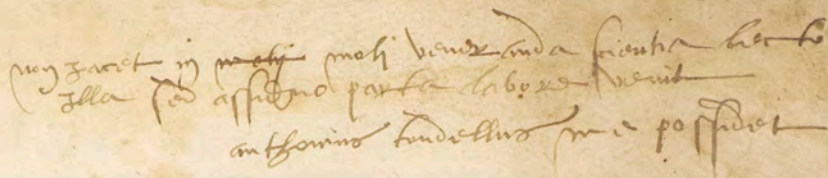 non jacet in molj molj veneranda scientia lecto
Illa sed assiduo parta labore venit
anthonius tondellus me possidet